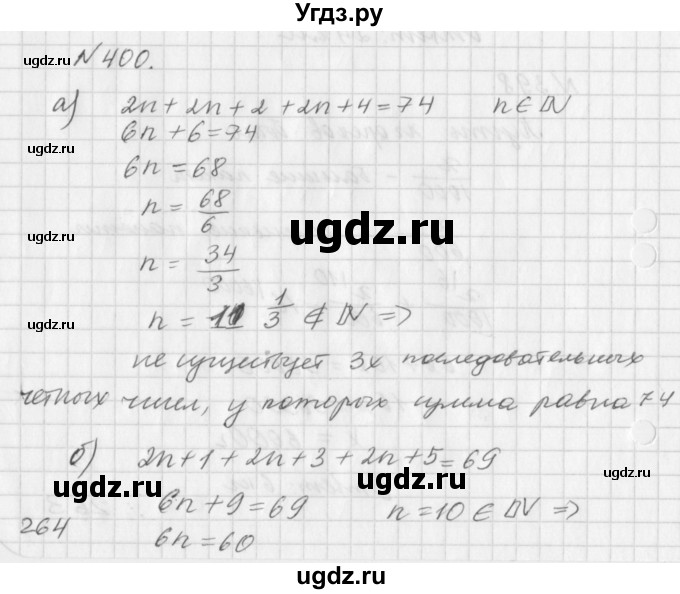 Угдз.ру
№400.
ugdz.ru
а) 2n+2n+2+2n+4=74 n∈ℕ
6n+6=74
ugdz.ru
6n=68
n= 68/6
ugdz.ru
ugdz.ru
n= 34/3
n= 11 1/3 ∉ ℕ =>
ugdz.ru
не существует 3х последовательных
четных чисел, у которых сумма равна 74
ugdz.ru
б) 2n+1+2n+3+2n+5=69
ugdz.ru
ugdz.ru
6n+9=69 n=10∈ℕ =>
ugdz.ru
264
6n=60
ugdz.ru
ugdz.ru